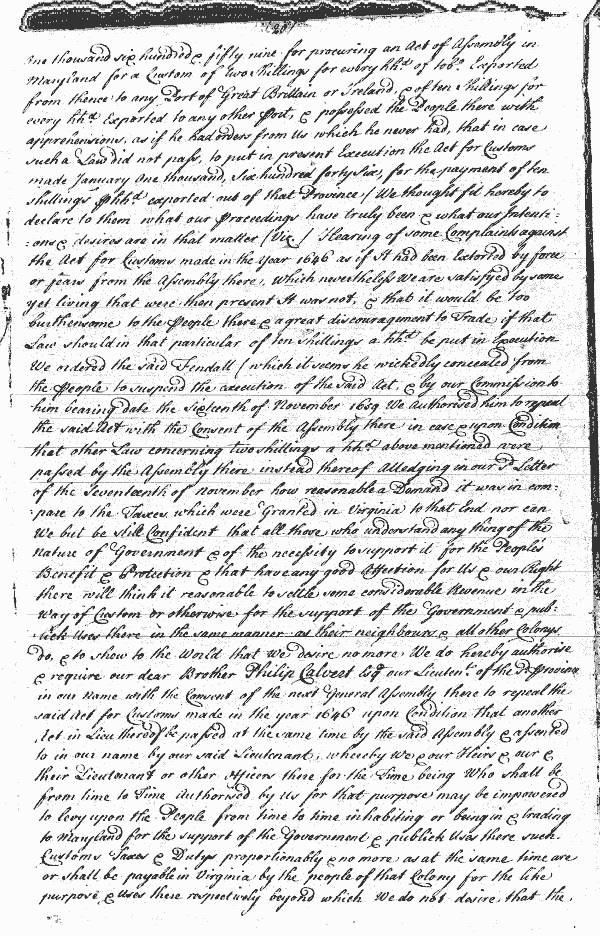 (26)
One thousand six hundred & fifty nine for procuring an Act of Assembly in
Maryland for a Custom of two shillings for every hhd. of tobo. Exported
from thence to any Port of Great Brittain or Ireland, & of ten shillings for
every hhd. Exported to any other Port, & possessed the People there with
apprehensions, as if he had orders from Us which he never had, that in case
such a Law did not pass, to put in present Execution the Act for Customs
made January One thousand, Six hundred forty Six, for the payment of ten
shillings hhd exported out of that Province / We thought fit hereby to
declare to them what our Proceedings have truly been & what our Intenti=
=ons & desires are in that matter / Viz. / Hearing of some Complaints against
the Act for Customs made in the Year 1646 as if It had been Extorted by force
or fears from the Assembly there, which nevertheless We are satisfyed by some
yet living that were then present It was not, & that it would be too
burthensome to the People there & a great discouragement to Trade if that
Law should in that particular of ten shillings a hhd be put in Execution
We ordered the said Fendall / which it seems he wickedly concealed from
the People to suspend the execution of the said Act, & by our Commission to
him bearing date the Sixteenth of November 1659 We Authorised him to repeal
the said Act with the Consent of the Assembly there in case & upon Condition
that other Law concerning two shillings a hhd. above mentioned were
passed by the Assembly there instead thereof Alledging in our sd. Letter
of the Seventeenth of November how reasonable a Demand it was in com=
=pare to the Taxes which were Granted in Virginia to that End nor can
We but be still Confident that all those who understand any thing of the
nature of Government & of the necessity to support it for the Peoples
Benefit & Protection & that have any good Affection for Us & our Right
there will think it reasonable to settle some considerable Revenue in the
way of Custom or otherwise for the support of the Government & pub=
=lick Uses there in the same manner as their neighbours & all other Colonys
do, & to show to the World that We desire no more We do hereby authorise
& require our dear Brother Philip Calvert Esq our Lieutent. of the sd. Province
in our Name with the Consent of the next General Assembly there to repeal the
said Act for Customs made in the year 1646 upon Condition that another
Act in Lieu thereof be passed at the same time by the said Assembly & assented
to in our name by our said Lieutenant, whereby We & our Heirs & our &
their Lieutenant or other officers there for the Time being Who shall be
from time to Time Authorised by Us for that purpose may be impowered
to levy upon the People from time to time inhabiting or being in & trading
to Maryland for the support of the Government & publick Uses there such
Customs Taxes & Dutys proportionably & no more as at the same time are
or shall be payable in Virginia by the people of that Colony for the like
purpose & Uses there respectively beyond which We do not desire that the